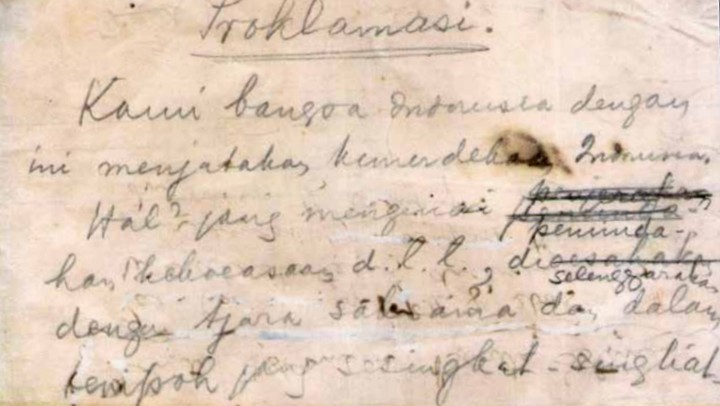 Proklamasi.
Kami bangsa Indonesia dengan
ini menjatakan kemerdekaan Indonesia.
Hal² jang mengenai
peminda-
han kekoeasaan d.l.l., dioesahakan
selenggarakan
dengan tjara saksama dan dalam
tempoh jang sesingkat-singkat-